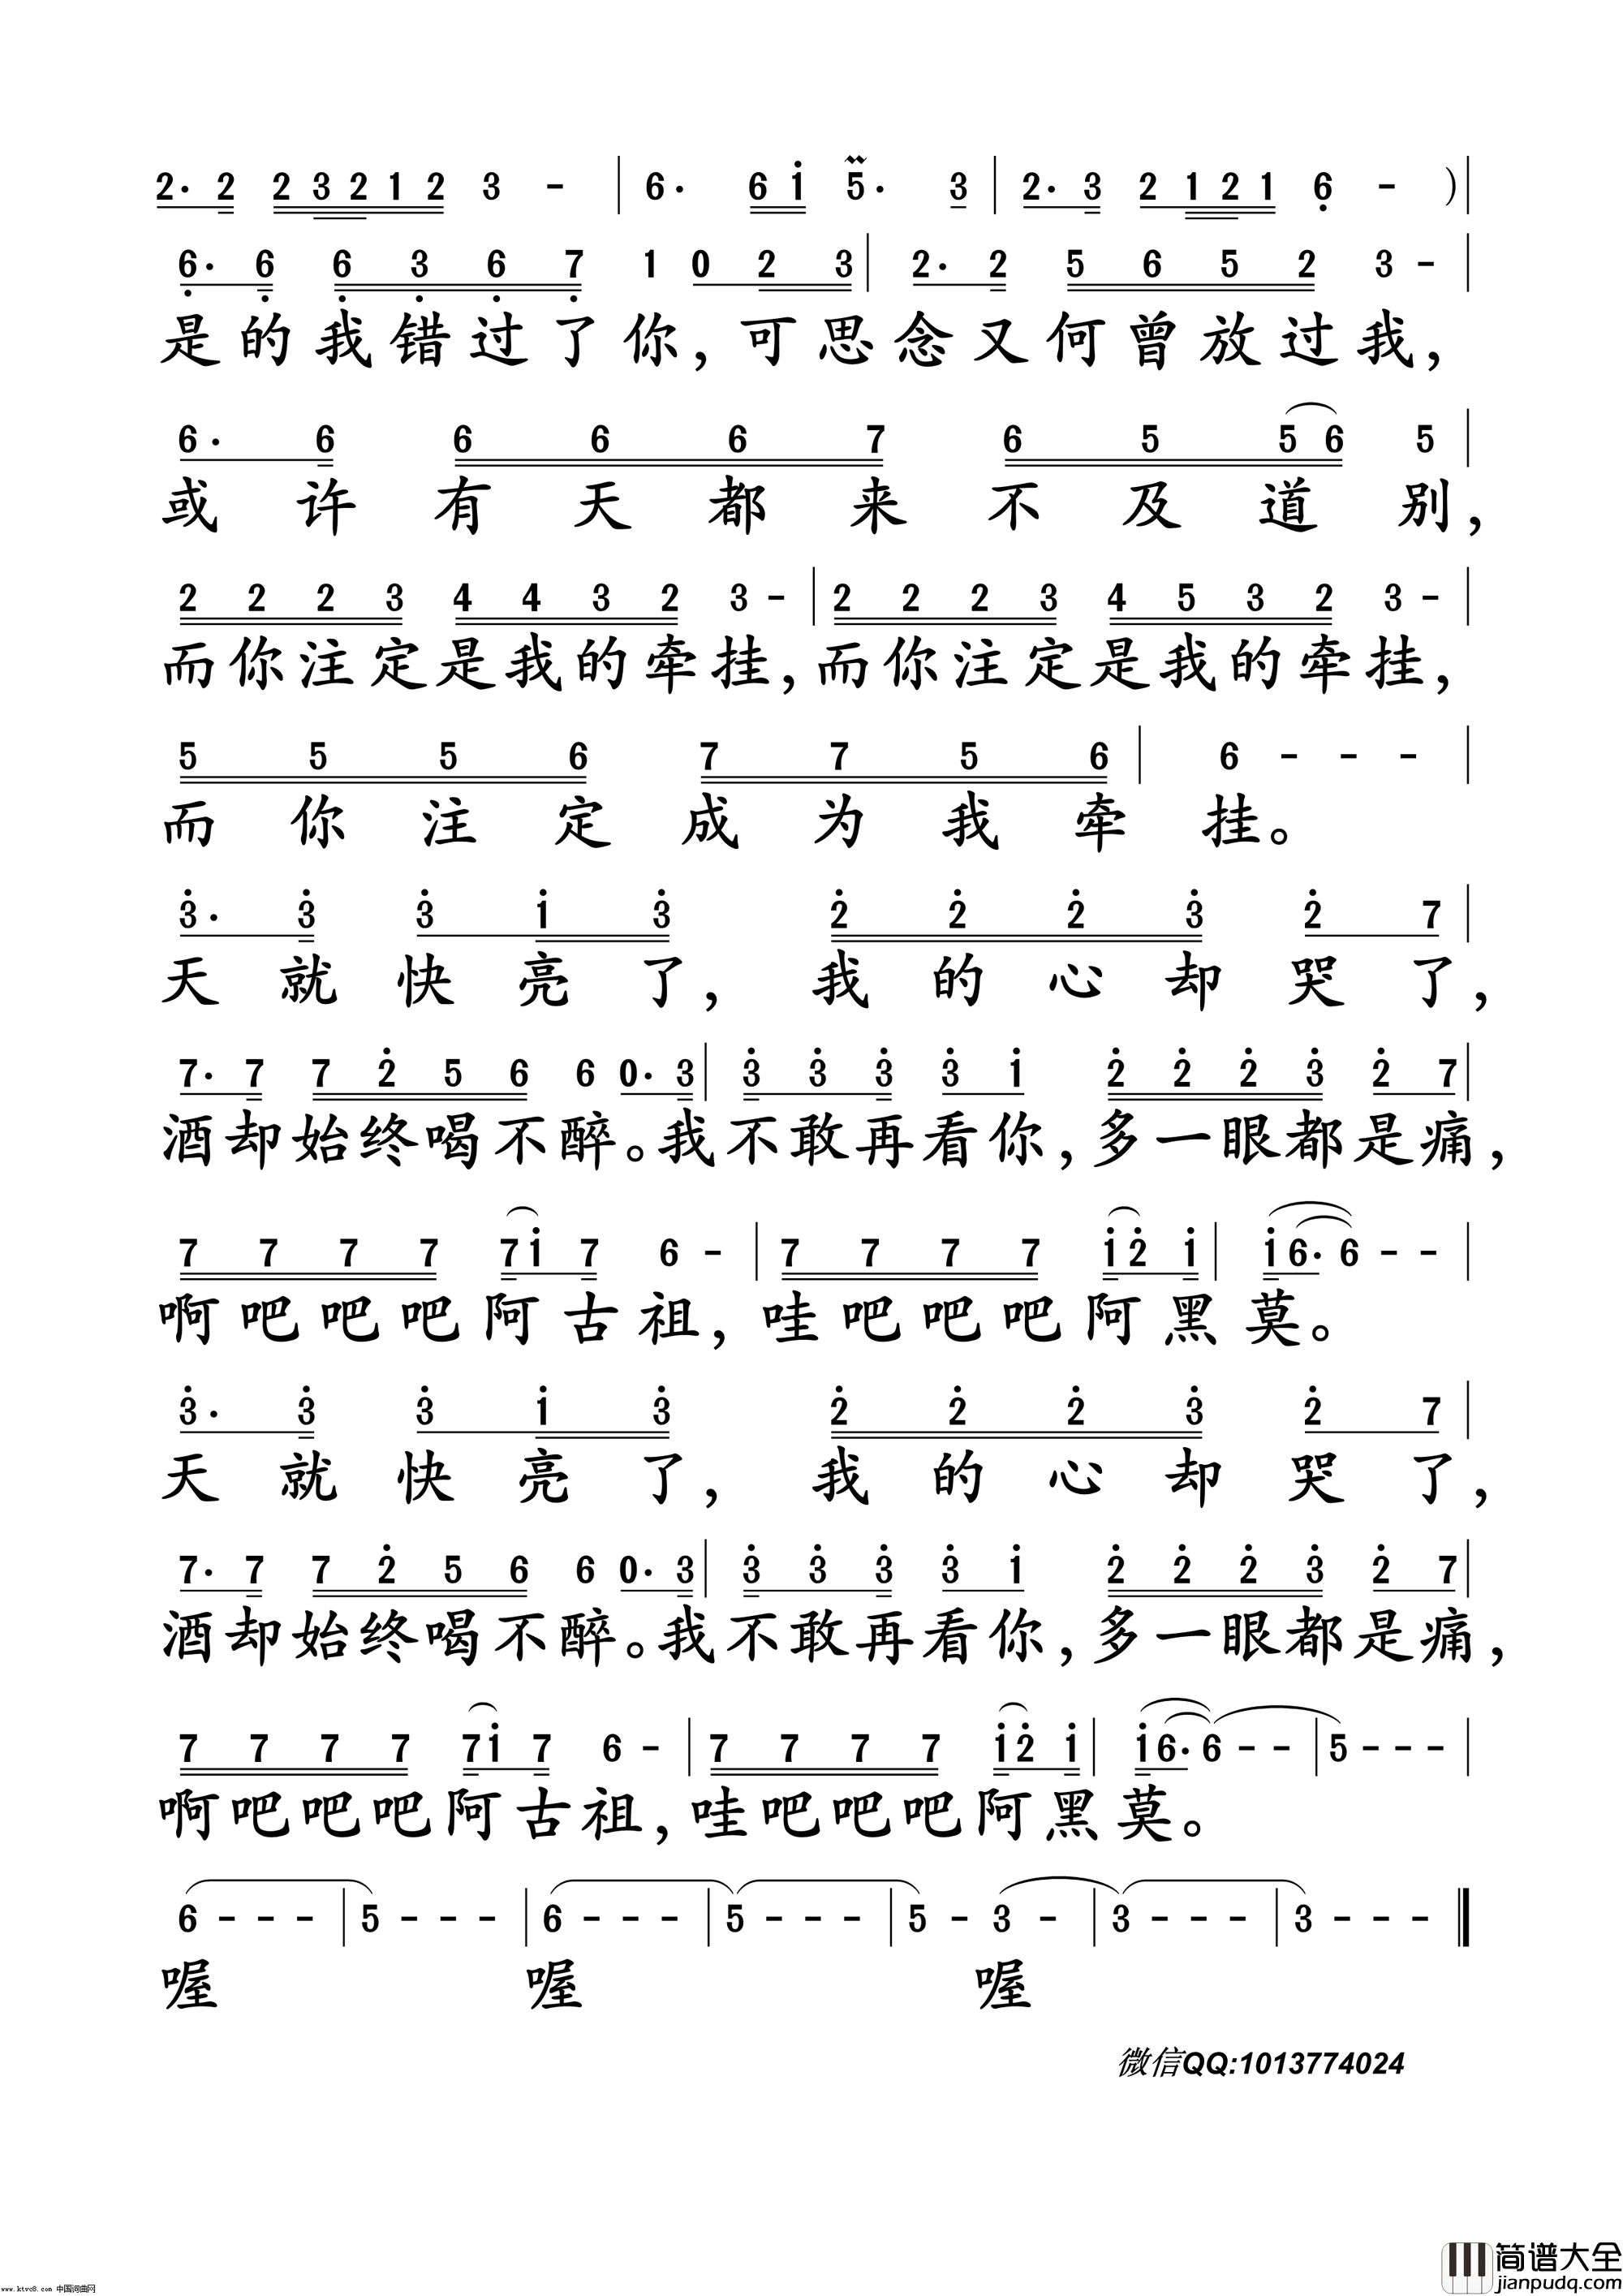 2. 2 2 3 2 1 2 3 - | 6. 6 i 5. 3 | 2. 3 2 1 2 1 6 - ) |
6. 6 6 3 6 7 1 0 2 3 | 2. 2 5 6 5 2 3 - |
是的我错过了你，可思念又何曾放过我，
6. 6 6 6 6 7 6 5 5 6 5 |
或许有天都来不及道别，
2 2 2 3 4 4 3 2 3 - | 2 2 2 3 4 5 3 2 3 - |
而你注定是我的牵挂，而你注定是我的牵挂，
5 5 5 6 7 7 5 6 | 6 - - - |
而你注定成为我牵挂。
3. 3 3 1 3 2 2 2 3 2 7 |
天就快亮了，我的心却哭了，
7. 7 7 2 5 6 6 0. 3 | 3 3 3 3 1 2 2 2 3 2 7 |
酒却始终喝不醉。我不敢再看你，多一眼都是痛，
7 7 7 7 7 i 7 6 - | 7 7 7 7 i 2 i | i 6. 6 - - |
啊吧吧吧阿古祖，哇吧吧吧阿黑莫。
3. 3 3 1 3 2 2 2 3 2 7 |
天就快亮了，我的心却哭了，
7. 7 7 2 5 6 6 0. 3 | 3 3 3 3 1 2 2 2 3 2 7 |
酒却始终喝不醉。我不敢再看你，多一眼都是痛，
7 7 7 7 7 i 7 6 - | 7 7 7 7 i 2 i | i 6. 6 - - | 5 - - - |
啊吧吧吧阿古祖，哇吧吧吧阿黑莫。
6 - - - | 5 - - - | 6 - - - | 5 - - - | 5 - 3 - | 3 - - - | 3 - - - ‖
喔 喔 喔
微信QQ:1013774024
简谱大全
jianpudq.com
www.ktvc8.com 中国词曲网